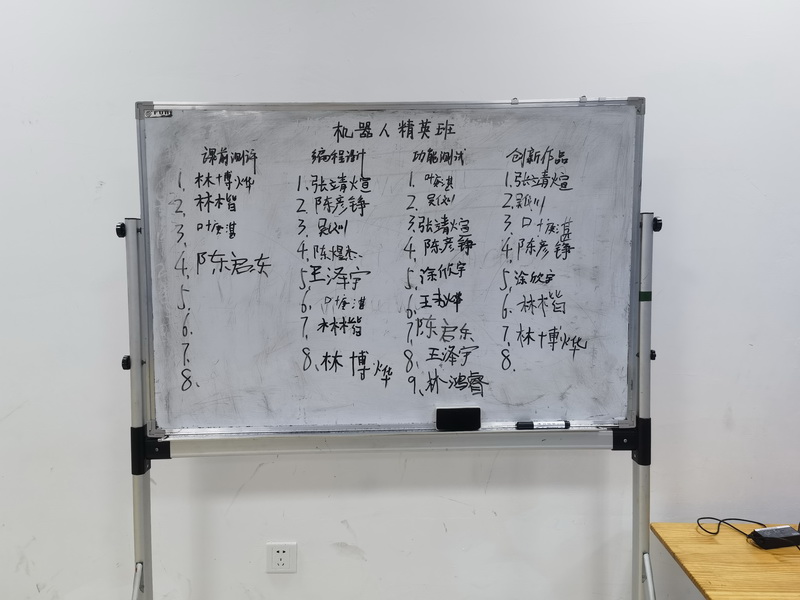 机器人精英班
课前测评
1. 林博烨
2. 林楷
3. 叶庭湛
4. 陈启东
5.
6.
7.
8.
编程设计
1. 张靖煊
2. 陈彦铮
3. 吴似川
4. 陈煜杰
5. 王泽宇
6. 叶庭湛
7. 林楷
8. 林博烨
功能测试
1. 叶庭湛
2.
3. 张靖煊
4. 陈彦铮
5. 涂欣宇
6. 王
7. 陈启东
8. 王泽宇
9. 林鸿睿
创新作品
1. 张靖煊
2.
3. 叶庭湛
4. 陈彦铮
5. 涂欣宇
6. 林楷
7. 林博烨
8.